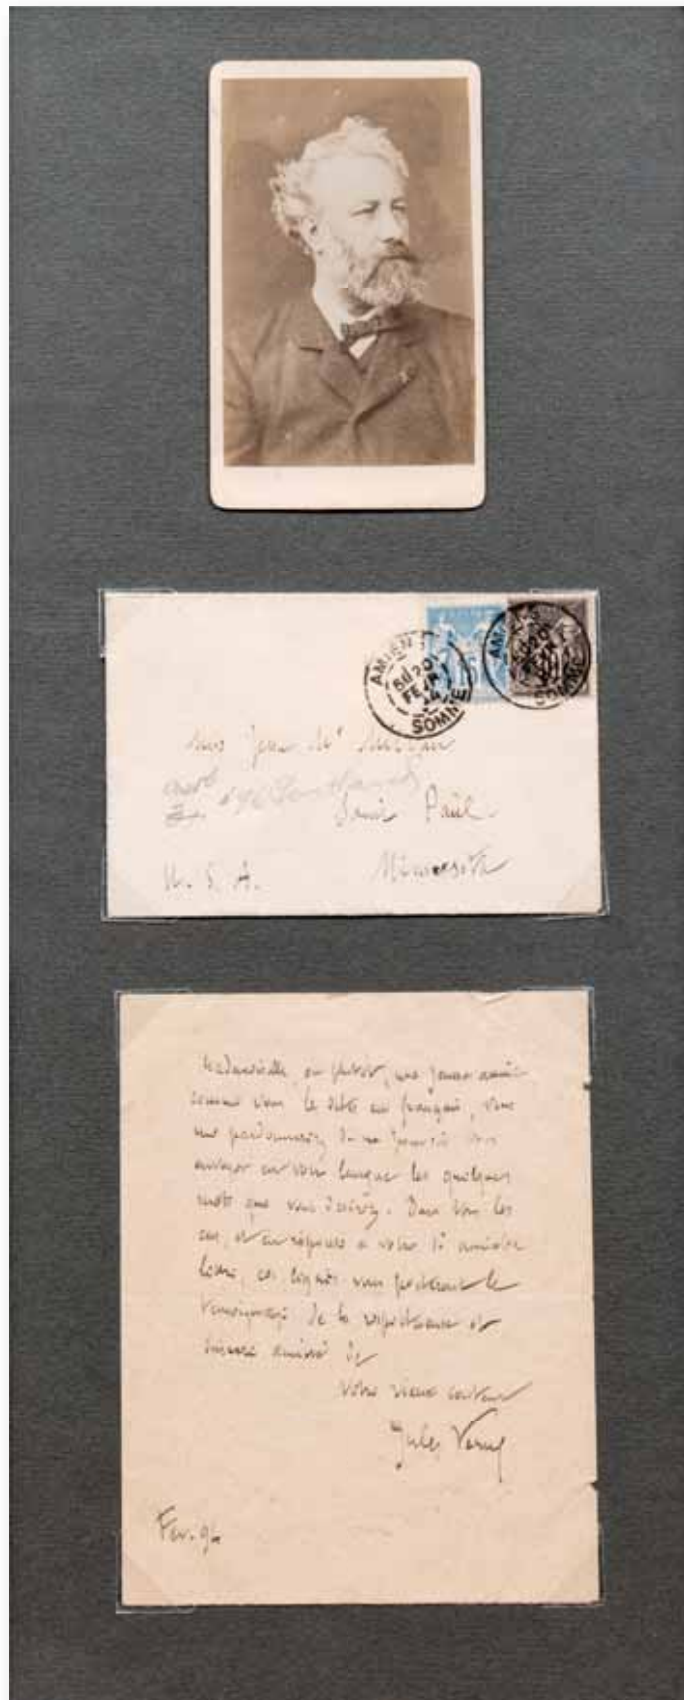 AMIENS
6E/20
FEVR
94
SOMME
AMIENS
SOMME
Miss Jean
Saint Paül
U. S. A. Minnesota
Mademoiselle, ou plutôt, ma jeune amie
comme vous le dites en français, vous
me pardonnerez de ne pouvoir vous
envoyer en votre langue les quelques
mots que vous désirez. Dans tous les
cas, et en réponse à votre si aimable
lettre, ces lignes vous porteront le
témoignage de la respectueuse et
sincère amitié de
votre vieux conteur
Jules Verne
Fev. 94